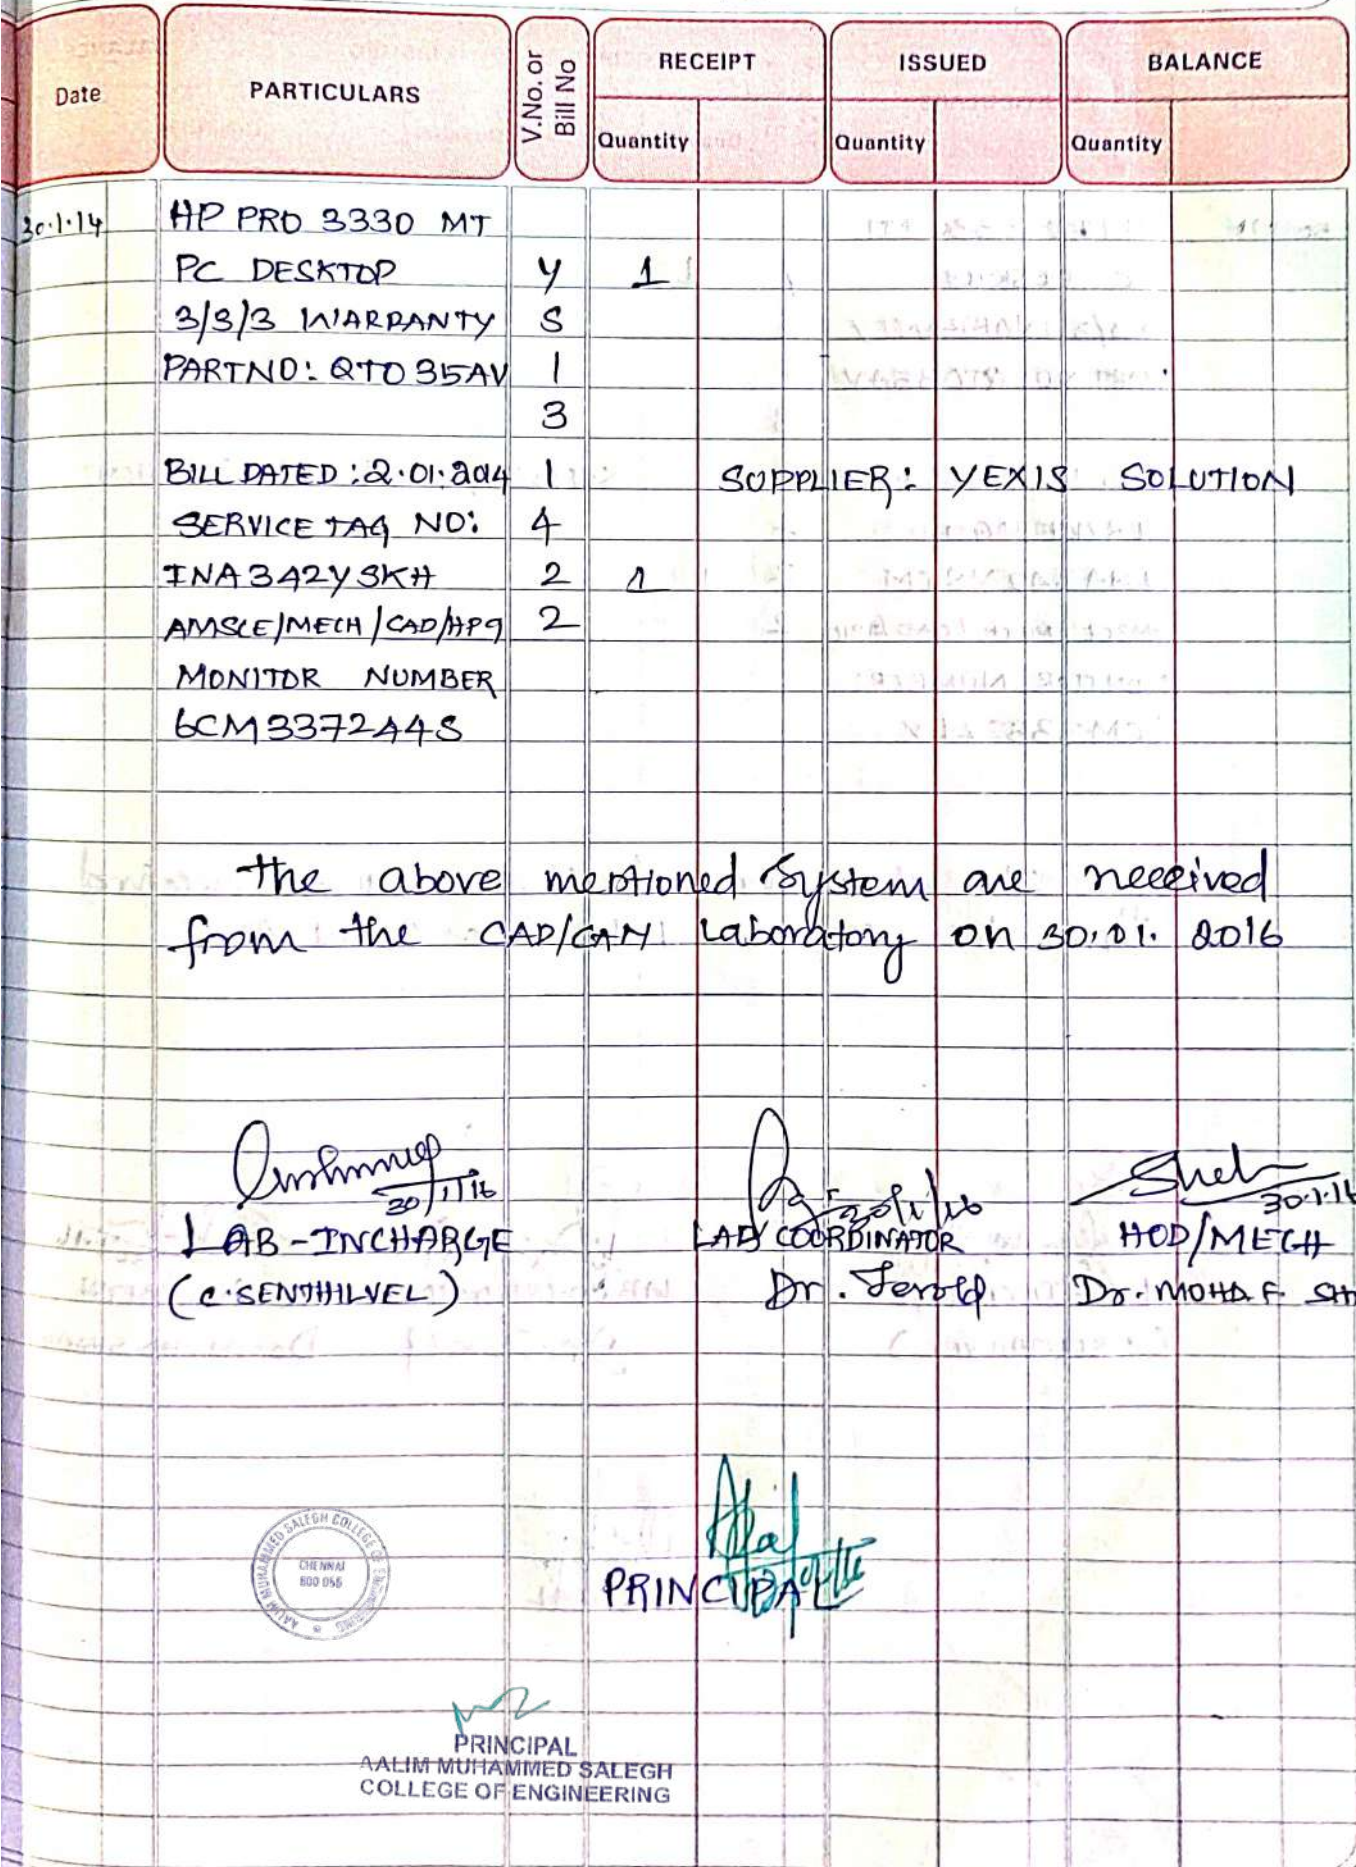 Date PARTICULARS V.No. or Bill No RECEIPT ISSUED BALANCE
Quantity Quantity Quantity
30.1.14 HP PRO 3330 MT
PC DESKTOP Y 1
3/3/3 WARRANTY S
PARTNO: QTO35AV 1
3
BILL DATED: 2.01.2014 1 SUPPLIER: YEXIS SOLUTION
SERVICE TAG NO: 4
INA342YSKH 2 1
AMSCE/MECH/CAD/HP9 2
MONITOR NUMBER
6CM3372A4S
The above mentioned System are received
from the CAD/CAM Laboratory on 30.01.2016
30/1/16 30.1.16
LAB-INCHARGE LAB COORDINATOR HOD/MECH
(C.SENTHILVEL) Dr. Jerold Dr. MOHA F. SH
AALIM MUHAMMED SALEGH COLLEGE OF ENGINEERING
CHENNAI
600 055
PRINCIPAL
PRINCIPAL
AALIM MUHAMMED SALEGH
COLLEGE OF ENGINEERING